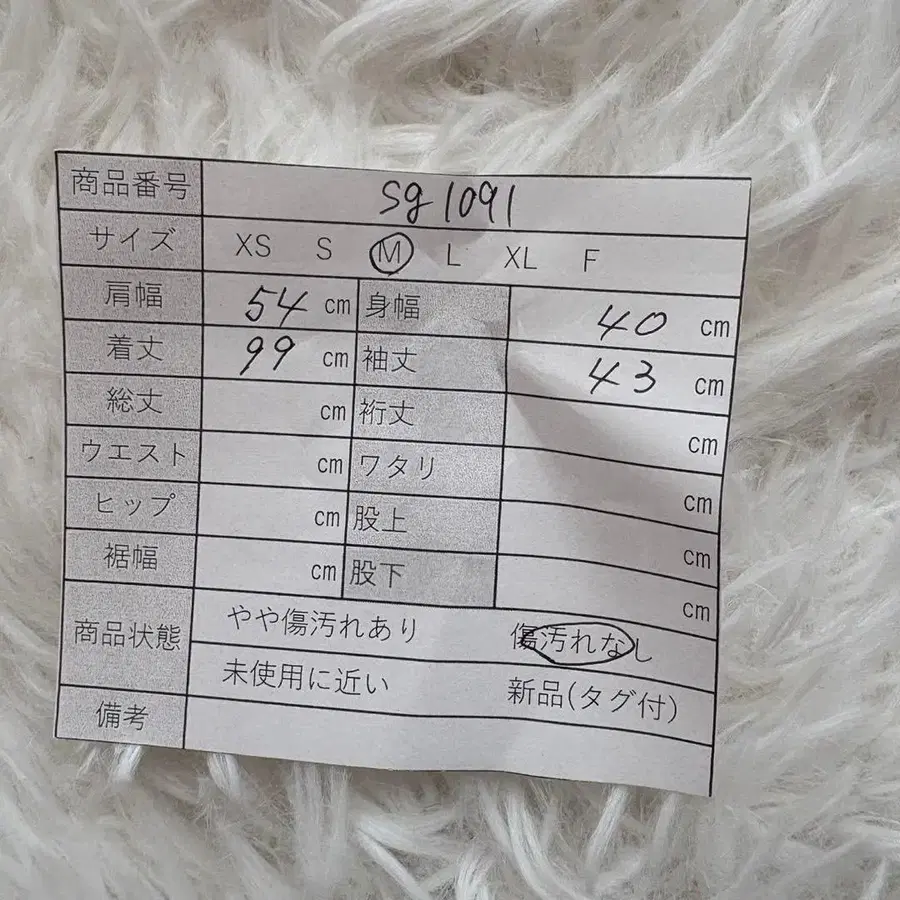 商品番号 sg1091
サイズ XS S M L XL F
肩幅 54 cm 身幅 40 cm
着丈 99 cm 袖丈 43 cm
総丈 cm 裄丈 cm
ウエスト cm ワタリ cm
ヒップ cm 股上 cm
裾幅 cm 股下 cm
商品状態 やや傷汚れあり 傷汚れなし
未使用に近い 新品(タグ付)
備考